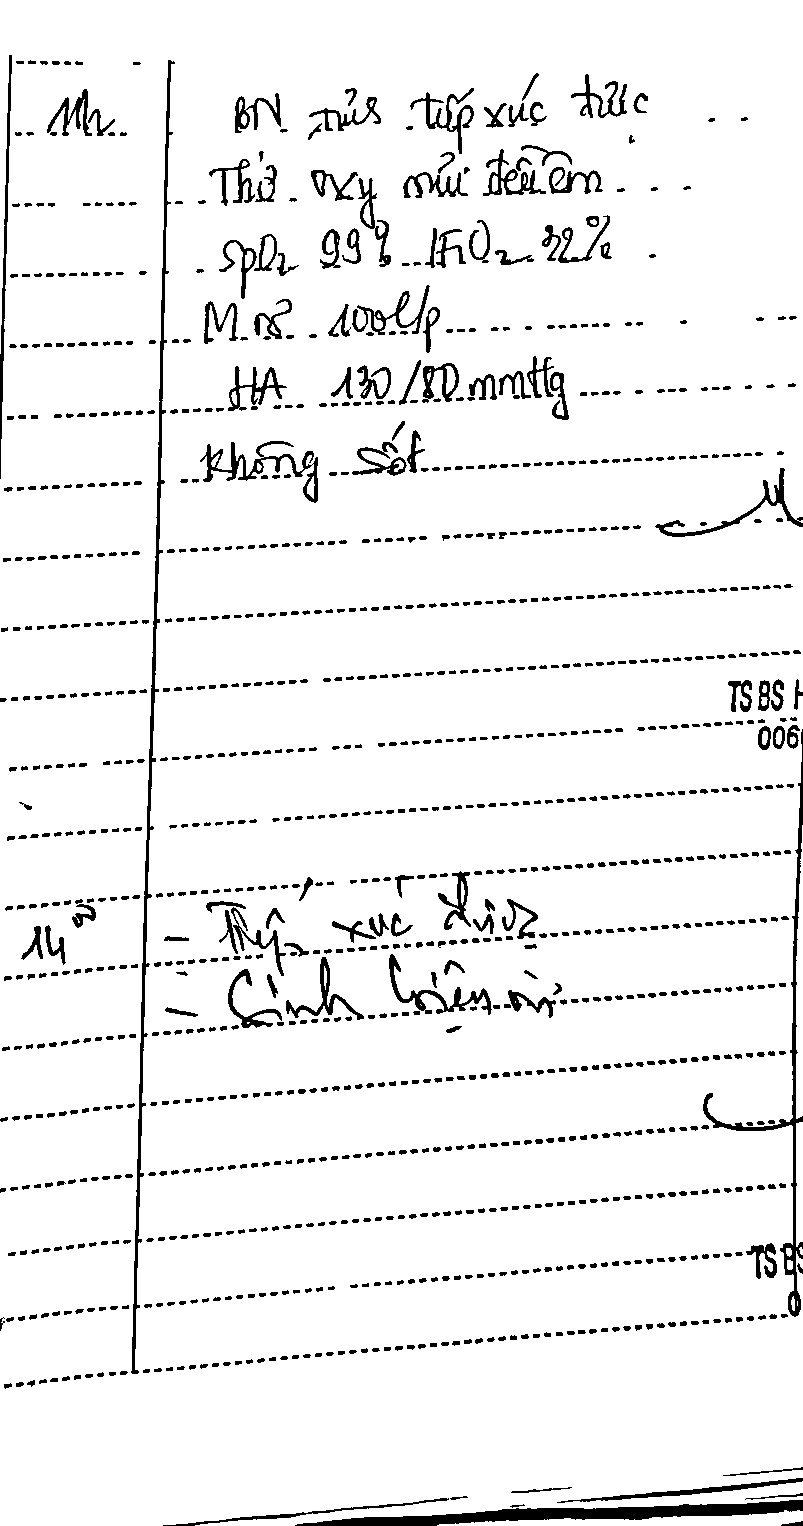 11h BN tỉnh tiếp xúc được
Thở oxy mũi đều êm
SpO2 99% FiO2 32%
M rõ 100l/p
HA 130/80 mmHg
Không sốt
TS BS H
006
14 00 - Tiếp xúc được
- Sinh hiệu ổn
TS BS
0